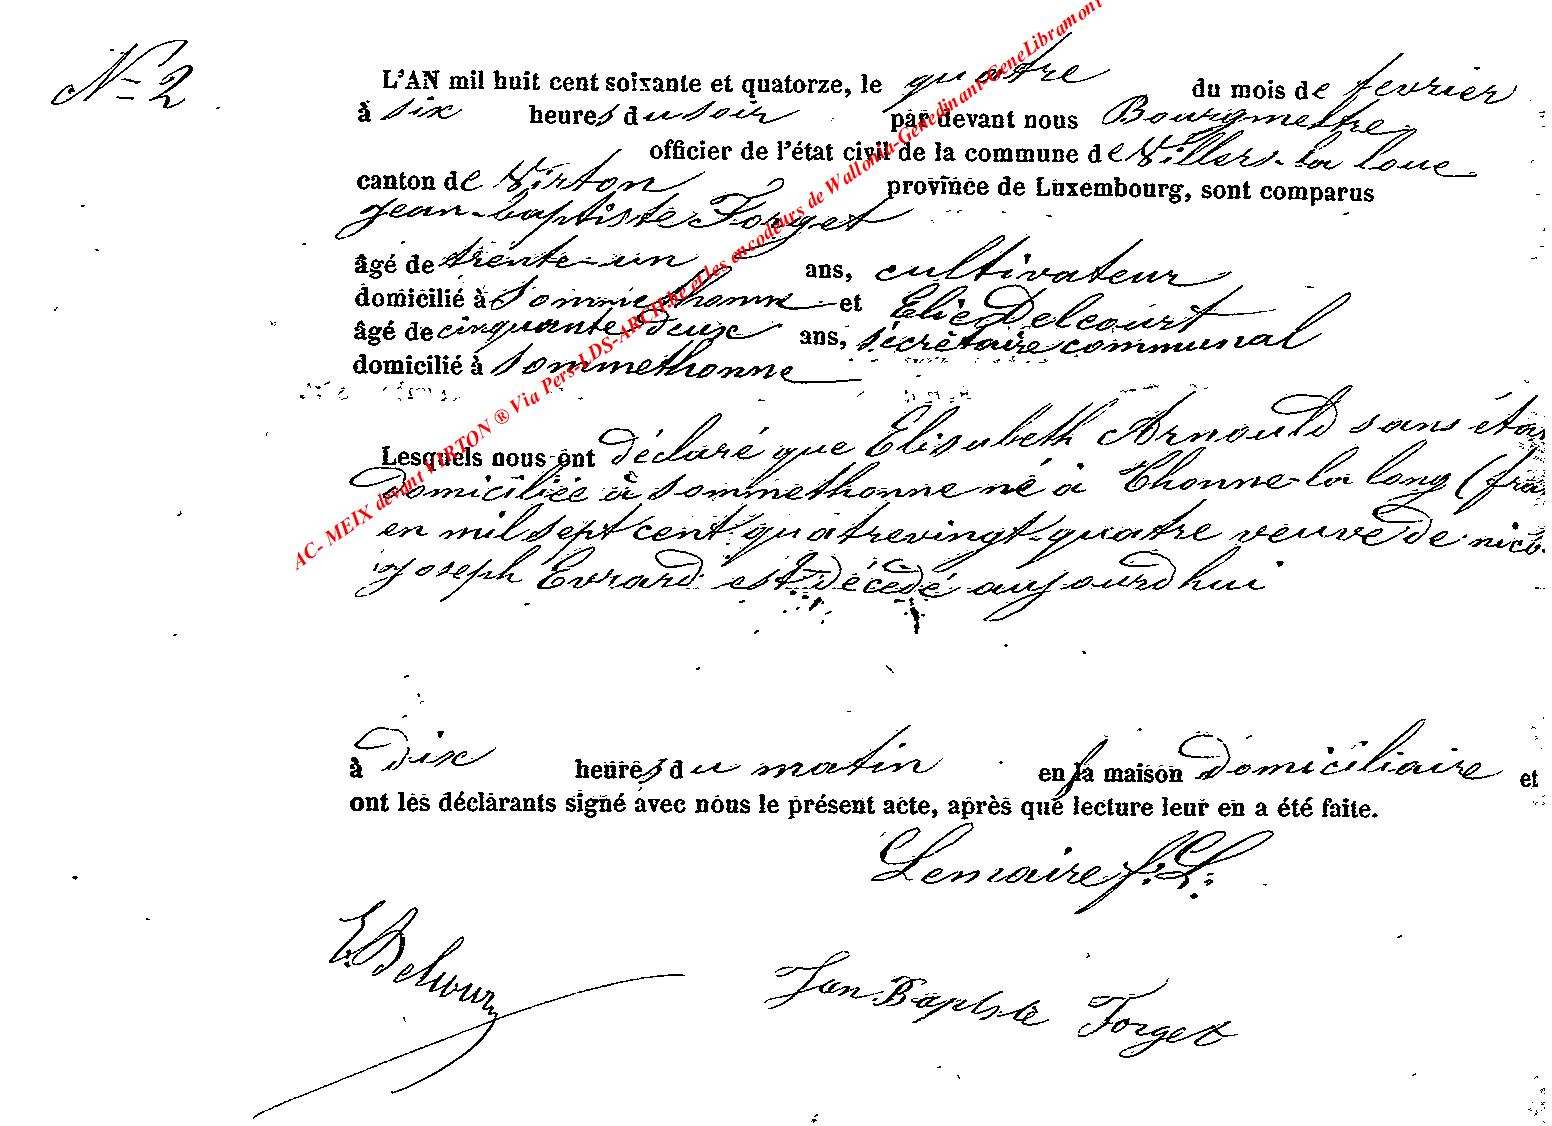 N° 2
L'AN mil huit cent soixante et quatorze, le quatre du mois de fevrier
à six heures du soir par devant nous Bourgmestre
officier de l'état civil de la commune de Villers-la loue
canton de Virton province de Luxembourg, sont comparus
jean-baptiste Forget
âgé de trente-un ans, cultivateur
domicilié à Sommethonne et Elie Delcourt
âgé de cinquante deux ans, sécrètaire communal
domicilié à Sommethonne
Lesquels nous ont déclaré que Elisabeth Arnould sans éta
domiciliée à sommethonne né à Thonne-la long (fra
en mil sept cent quatrevingt-quatre veuve de nico
joseph Evrard est décédé aujourdhui
à dix heures du matin en la maison domiciliaire et
ont les déclarants signé avec nous le présent acte, après que lecture leur en a été faite.
Lemaire f. L.
E. Delcourt
Jan Baptiste Forget
AC- MEIX devant VIRTON ® Via Pers-LDS-ARCH.be et les encodeurs de Wallonia-Genedinant-GeneLibramont